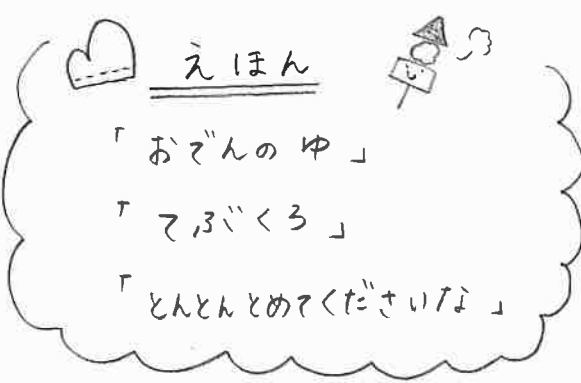 えほん
「おでんのゆ」
「てぶくろ」
「とんとんとめてくださいな」